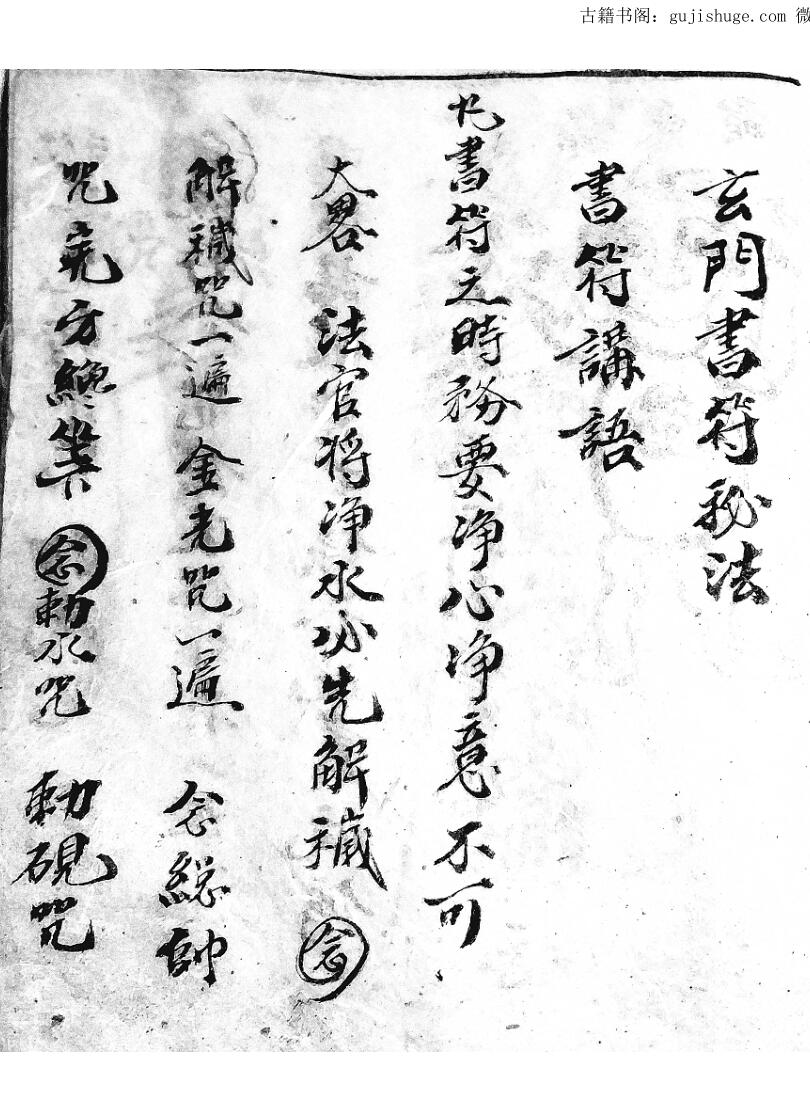 古籍书阁：gujishuge.com 微
玄門書符秘法
書符講語
凡書符之時務要净心净意不可
大畧 法官将净水必先解穢 念
解穢咒一遍 金光咒一遍 念總帥
咒完方纔 念勅水咒 勅硯咒